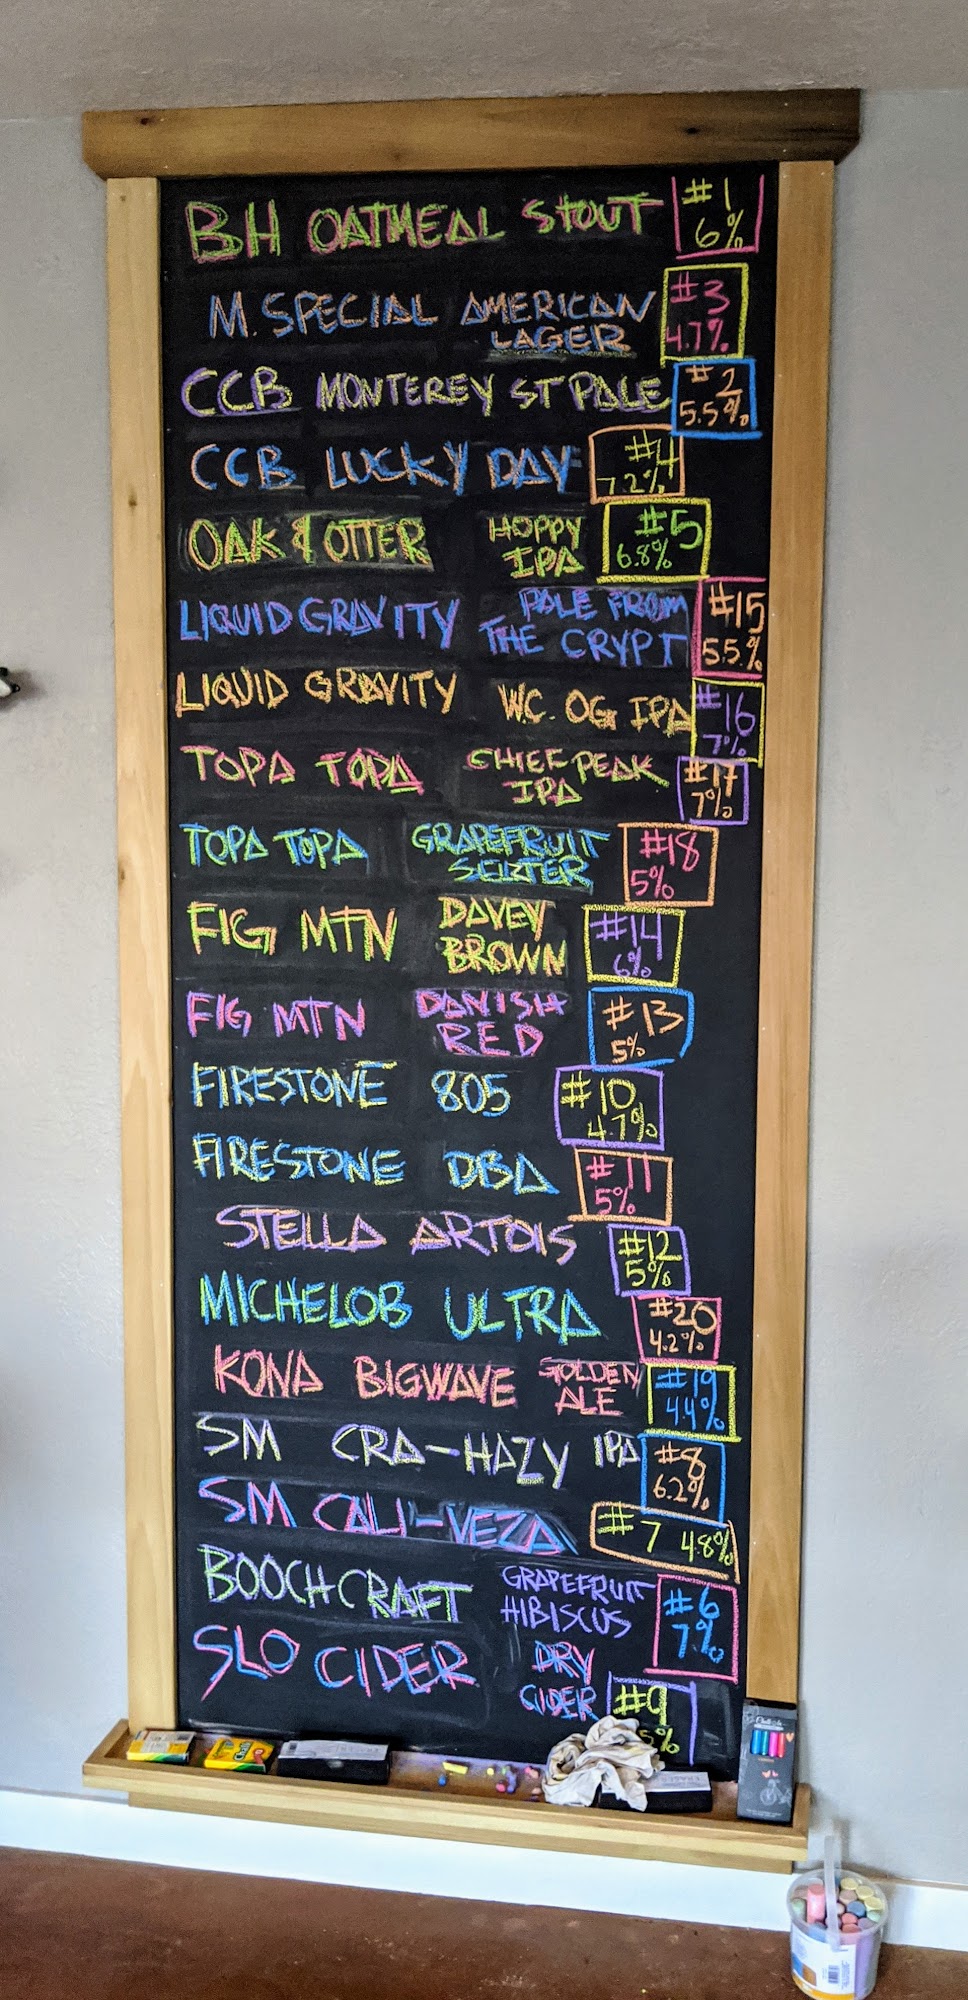 BH OATMEAL STOUT #1
6%
M. SPECIAL AMERICAN LAGER #3
4.7%
CCB MONTEREY ST PALE #2
5.5%
CCB LUCKY DAY #4
7.2%
OAK & OTTER HOPPY IPA #5
6.8%
LIQUID GRAVITY PALE FROM THE CRYPT #15
5.5.%
LIQUID GRAVITY W.C. OG IPA #16
7%
TOPA TOPA CHIEF PEAK IPA #17
7%
TOPA TOPA GRAPEFRUIT SELTZER #18
5%
FIG MTN DAVEY BROWN #14
6%
FIG MTN DANISH RED #13
5%
FIRESTONE 805 #10
4.7%
FIRESTONE DBA #11
5%
STELLA ARTOIS #12
5%
MICHELOB ULTRA #20
4.2%
KONA BIGWAVE GOLDEN ALE #19
4.4%
SM CRA-HAZY IPA #8
6.2%
SM CALI-VEZA #7 4.8%
BOOCHCRAFT GRAPEFRUIT HIBISCUS #6
7%
SLO CIDER DRY CIDER #9
Chalk